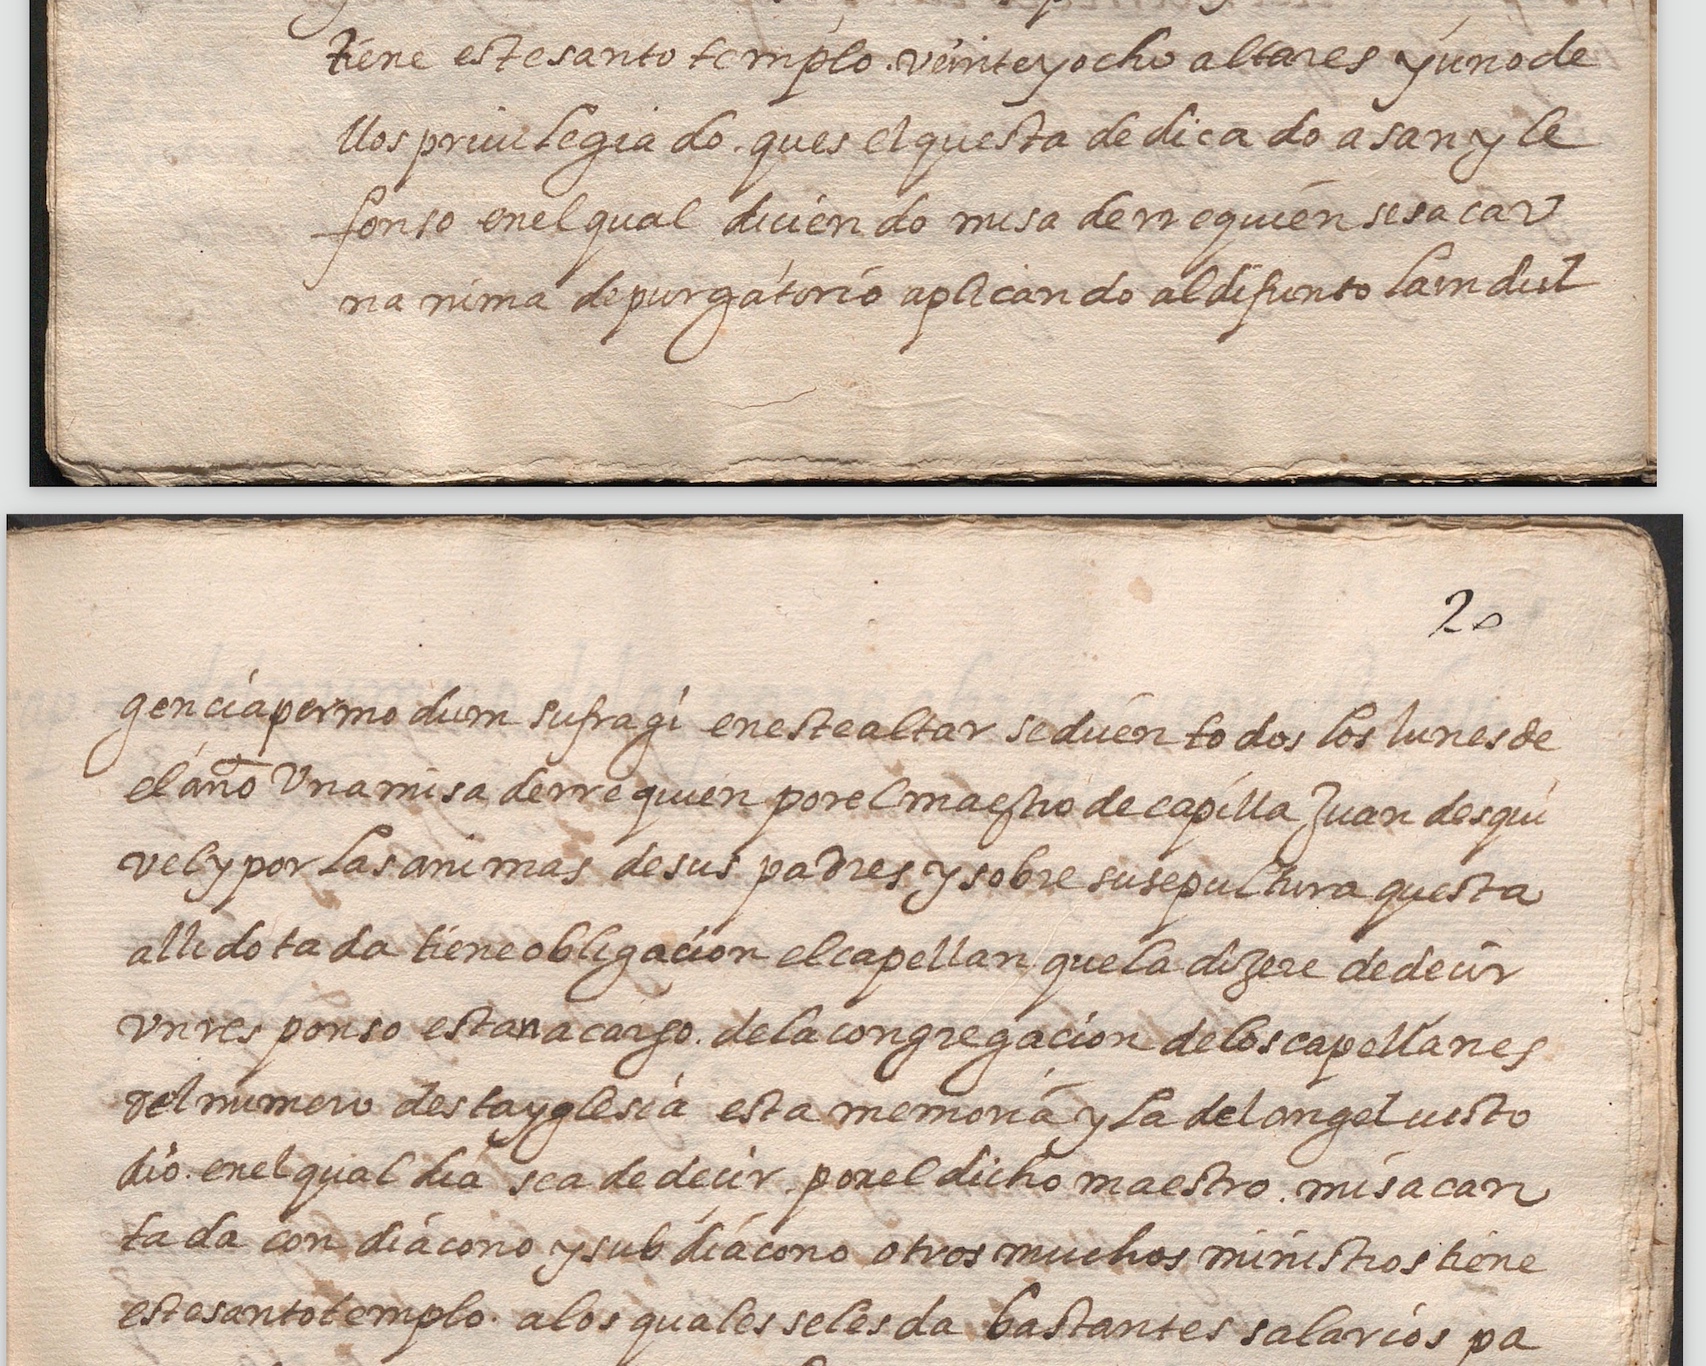 tiene este santo templo. veinte y ocho altares y uno de
llos priuilegia do. ques el questa dedicado a san yle
fonso en el qual diciendo misa de rrequien se saca v
na nima de purgatorio aplicando al difunto la indul
20
gencia per modum sufragi en este altar se dicen todos los lunes de
el año Vna misa de rrequien por el maestro de capilla Juan desqui
vel y por las animas de sus padres y sobre su sepultura questa
alli dotada tiene obligacion el capellan que la dixere de decir
vn responso estan a cargo. de la congregacion de los capellanes
del numero desta yglesia esta memoria y la del angel custo
dio. en el qual dia sea de decir. por el dicho maestro. misa can
tada con diacono y subdiacono otros muchos ministros tiene
este santo templo. a los quales se les da bastantes salarios pa